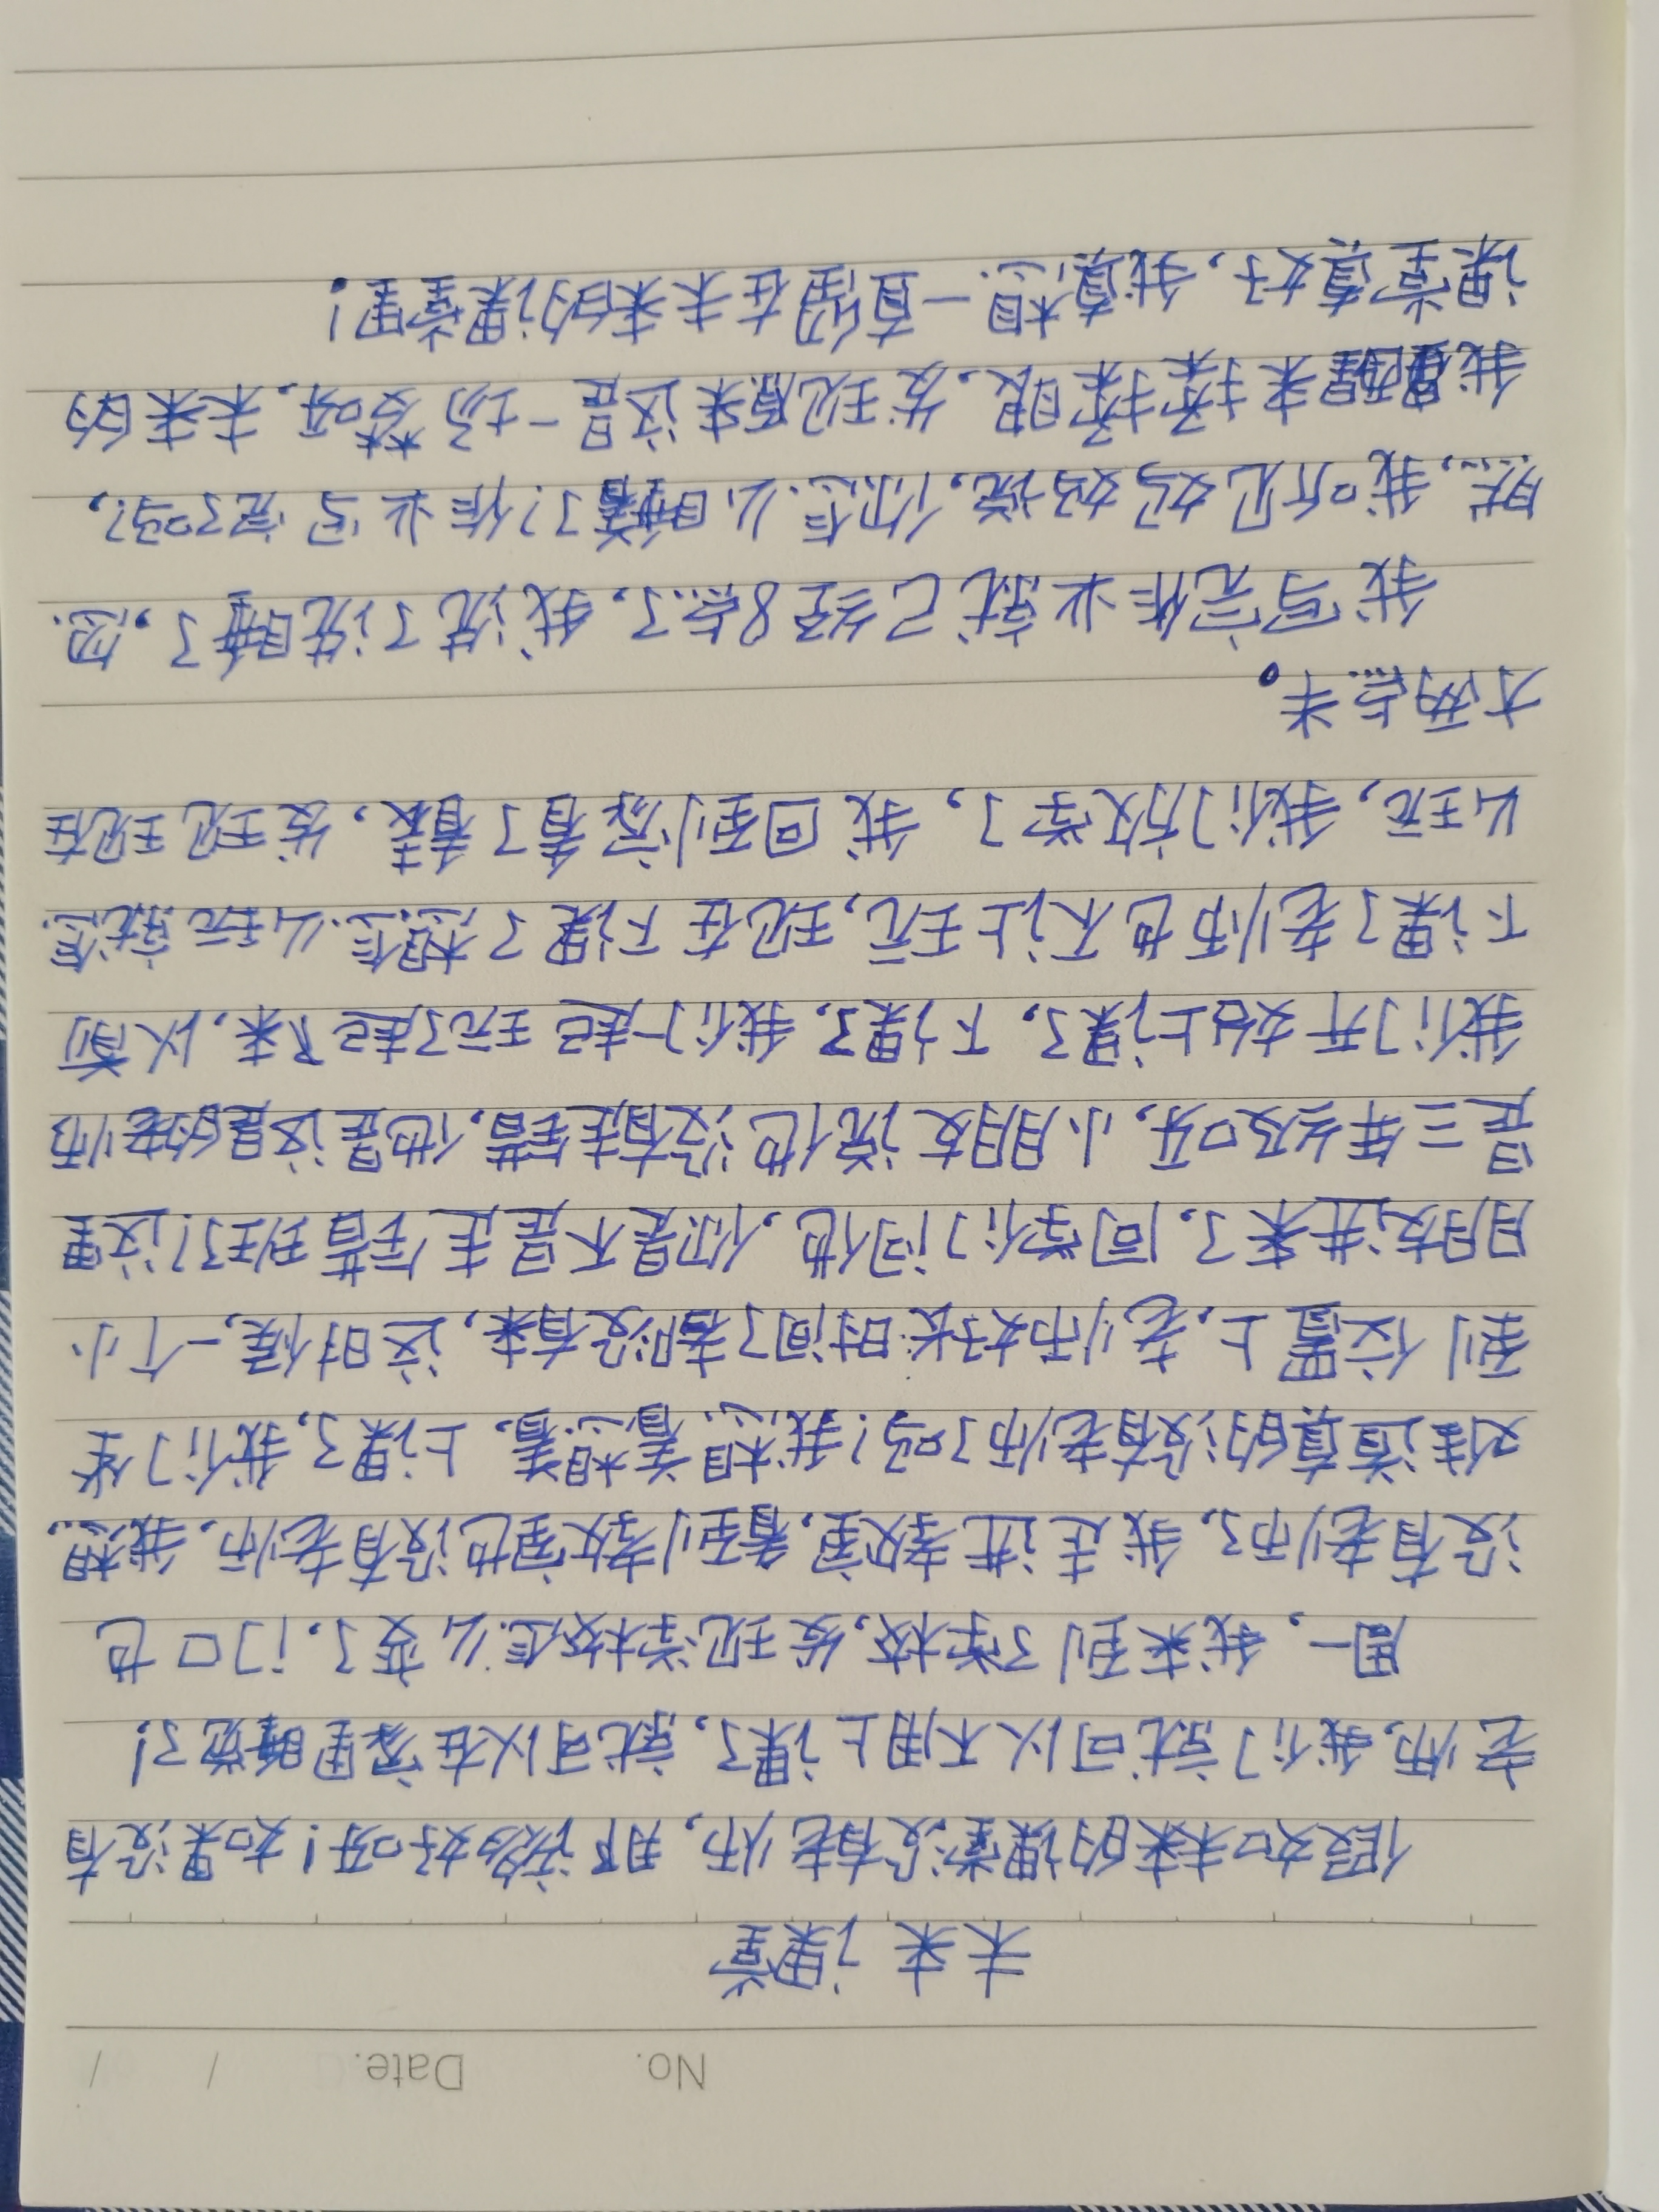 No.
Date. / /
未来课堂
假如未来的课堂没有老师,那该多好呀!如果没有
老师,我们就可以不用上课了,就可以在家里睡觉了!
周一,我来到了学校,发现学校怎么变了,门口也
没有老师了,我走进教室,看到教室也没有老师,我想,
难道真的没有老师了吗?我想着想着,上课了,我们坐
到位置上,老师好长时间了都没有来,这时候,一个小
朋友进来了,同学们问他,你是不是走错班了?这里
是三年级呀,小朋友说他没有走错,他是这里的老师
我们开始上课了,下课了,我们一起玩了起来,以前
下课了老师也不让玩,现在下课了想怎么玩就怎
么玩,我们放学了,我回到家看了看表,发现现在
才两点半。
我写完作业就已经8点了,我洗了洗睡了,忽
然,我听见妈妈说,你怎么睡着了?作业写完了吗?,
我醒来揉揉眼,发现原来这是一场梦呀,未来的
课堂真好,我真想一直留在未来的课堂里!